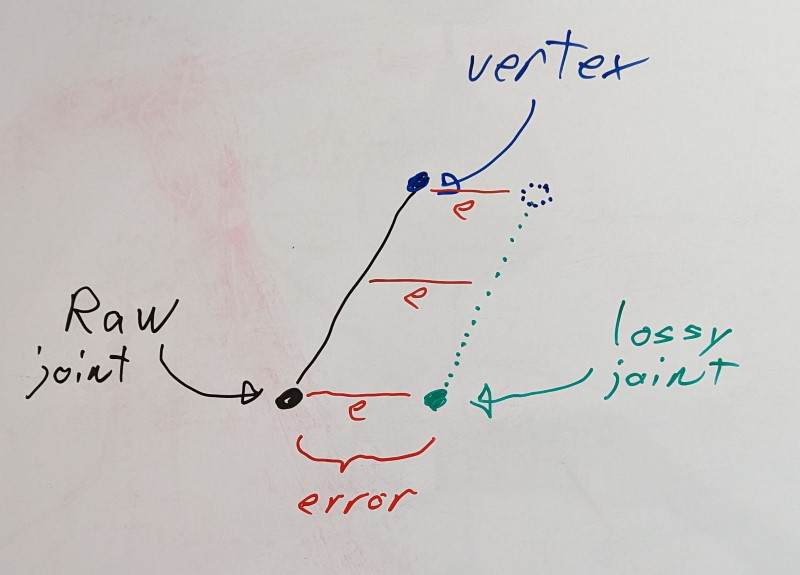 vertex
e
e
Raw
joint
lossy
joint
e
error